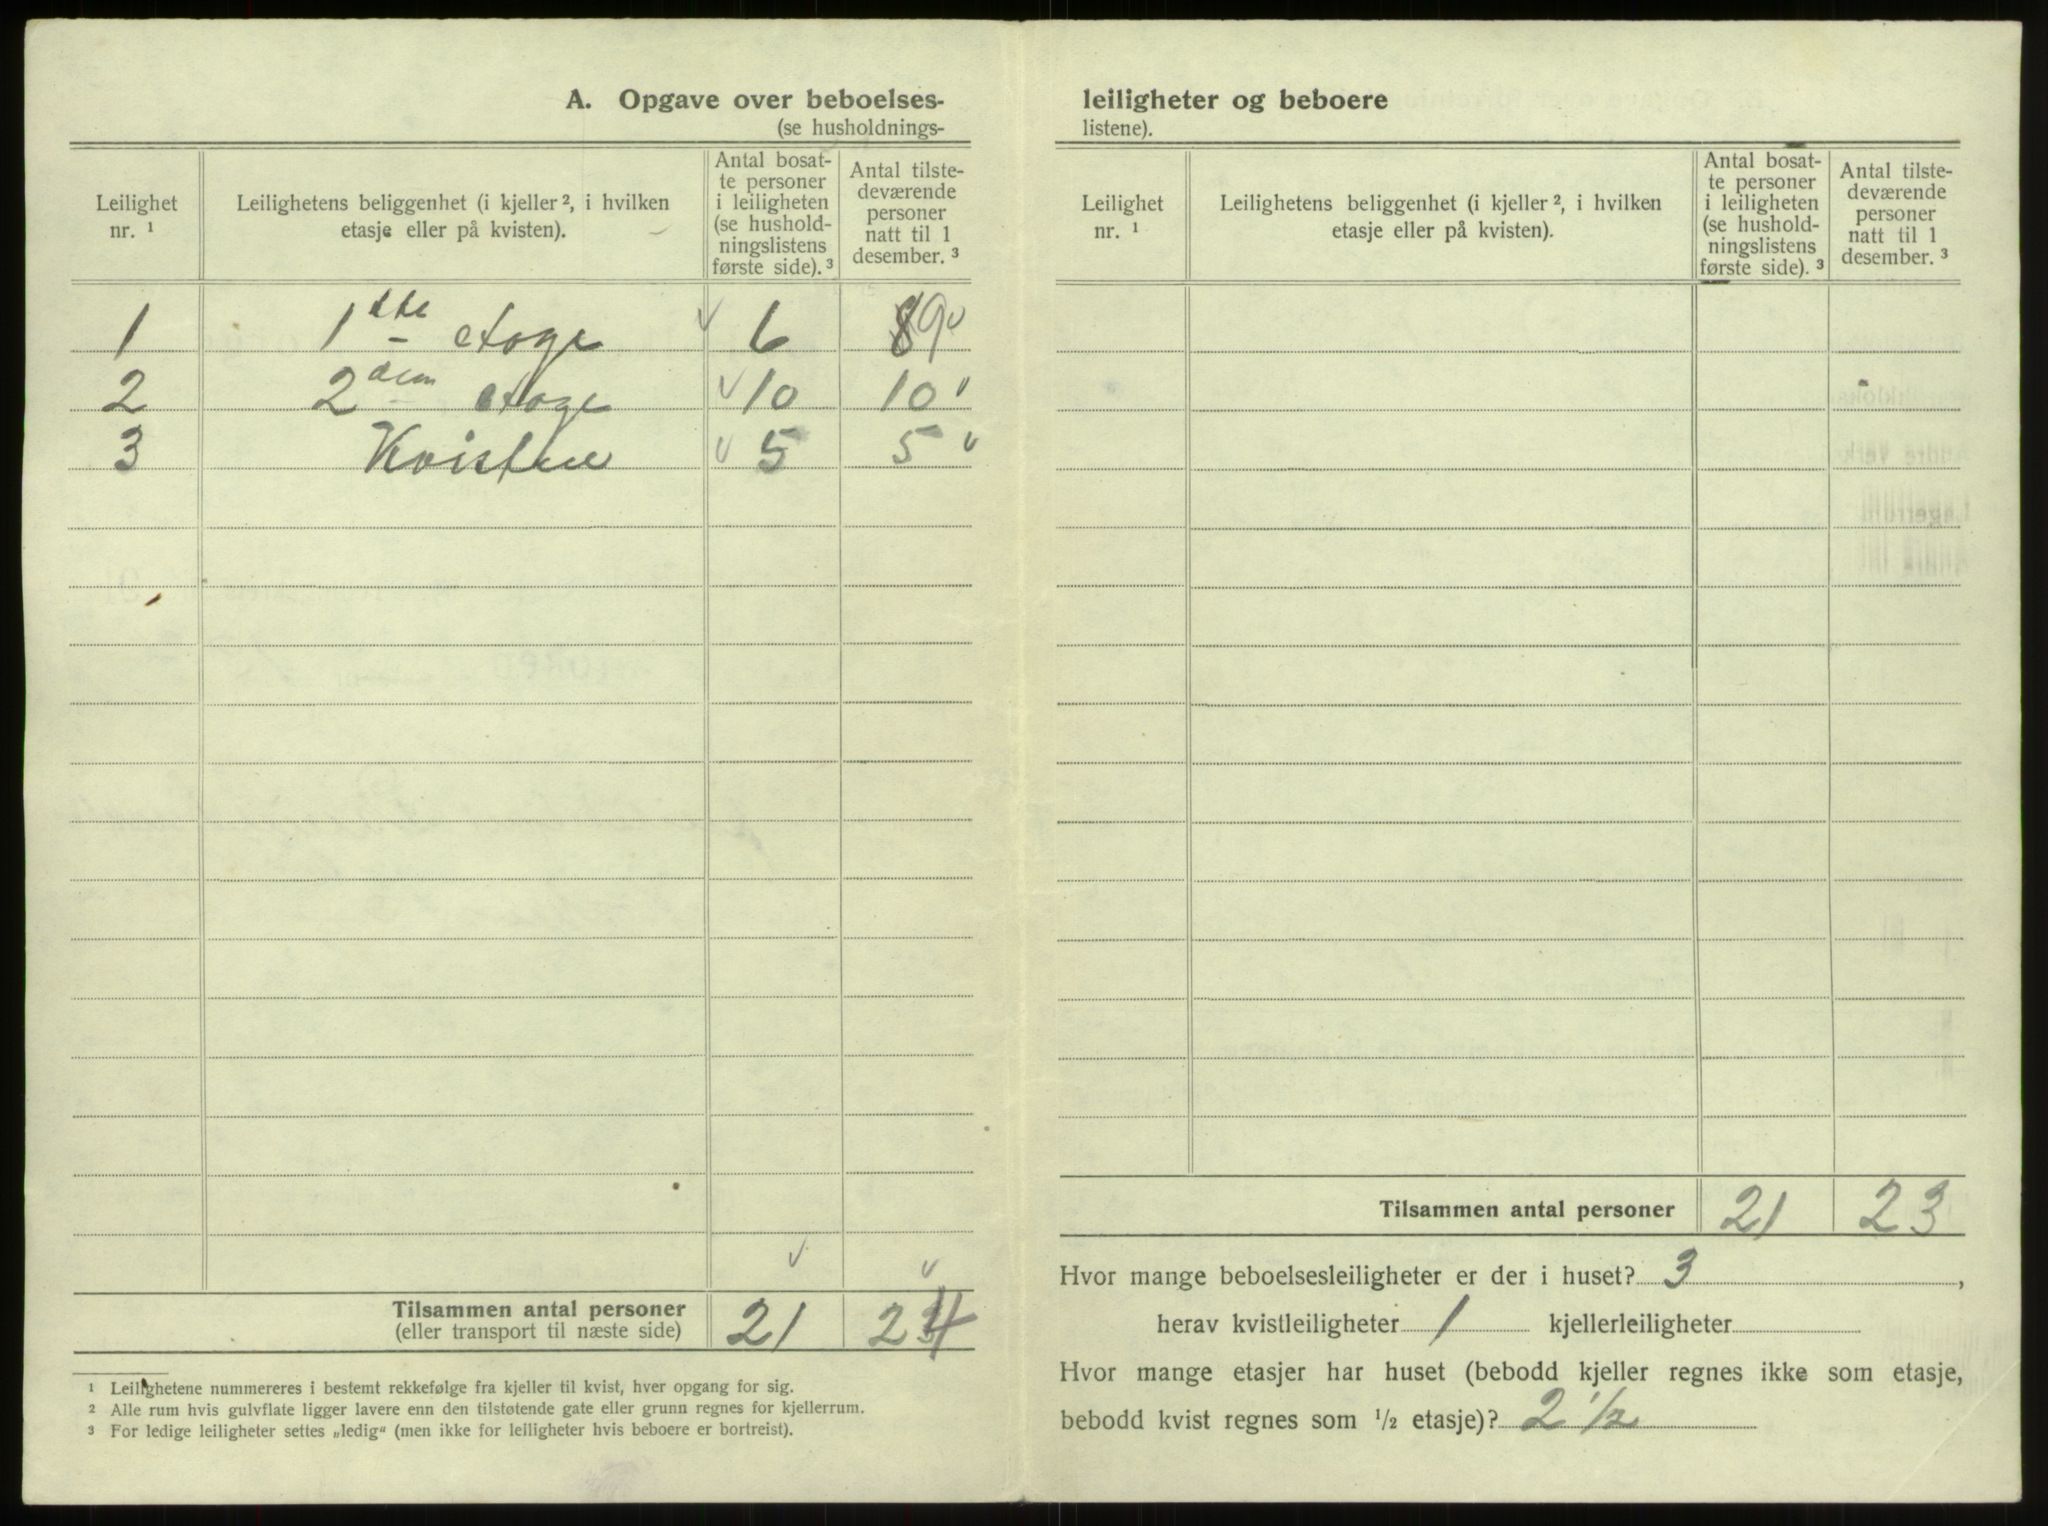 A. Opgave over beboelses-
(se husholdnings-
Leilighet nr. ¹
Leilighetens beliggenhet (i kjeller ², i hvilken
etasje eller på kvisten).
Antal bosat-
te personer
i leiligheten
(se hushold-
ningslistens
første side). ³
Antal tilste-
deværende
personer
natt til 1
desember. ³
1 1ste etage 6 9
2 2den etage 10 10
3 Kvisten 5 5
Tilsammen antal personer 21 24
(eller transport til næste side)
¹ Leilighetene nummereres i bestemt rekkefølge fra kjeller til kvist, hver opgang for sig.
² Alle rum hvis gulvflate ligger lavere enn den tilstøtende gate eller grunn regnes for kjellerrum.
³ For ledige leiligheter settes „ledig“ (men ikke for leiligheter hvis beboere er bortreist).
leiligheter og beboere
listene).
Leilighet nr. ¹
Leilighetens beliggenhet (i kjeller ², i hvilken
etasje eller på kvisten).
Antal bosat-
te personer
i leiligheten
(se hushold-
ningslistens
første side). ³
Antal tilste-
deværende
personer
natt til 1
desember. ³
Tilsammen antal personer 21 23
Hvor mange beboelsesleiligheter er der i huset? 3 ,
herav kvistleiligheter 1 kjellerleiligheter
Hvor mange etasjer har huset (bebodd kjeller regnes ikke som etasje,
bebodd kvist regnes som ½ etasje)? 2 ½